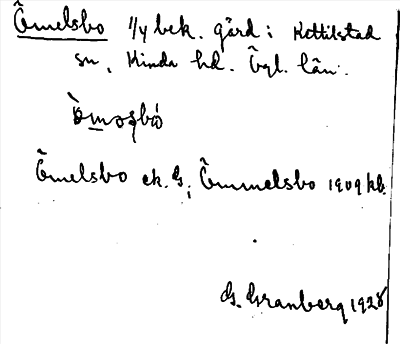 Ömelsbo 1/4 bek. gård i Kettilstad
sn, Kinda hd. Ögl. län.
Ömelsbo ek. G; Ömmelsbo 1909 kb.
G. Granberg 1928